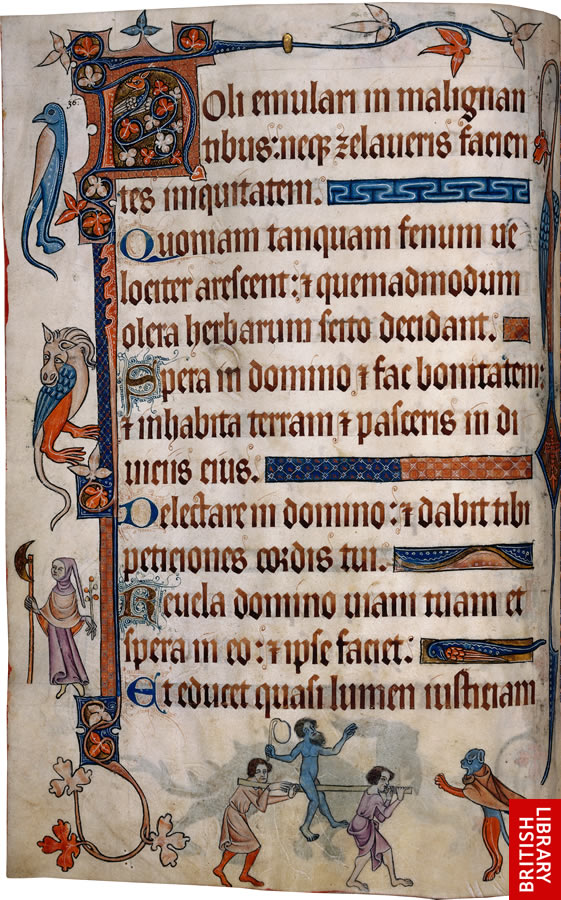 36.
Noli emulari in malignan
tibus: neq; zelaueris facien
tes iniquitatem.
Quoniam tanquam fenum ue
lociter arescent: ⁊ quemadmodum
olera herbarum decidant.
Spera in domino ⁊ fac bonitatem:
⁊ inhabita terram ⁊ pasceris in di
uiciis eius.
Delectare in domino: ⁊ dabit tibi
peticiones cordis tui.
Reuela domino uiam tuam et
spera in eo: ⁊ ipse faciet:
Et educet quasi lumen iusticiam
BRITISH
LIBRARY